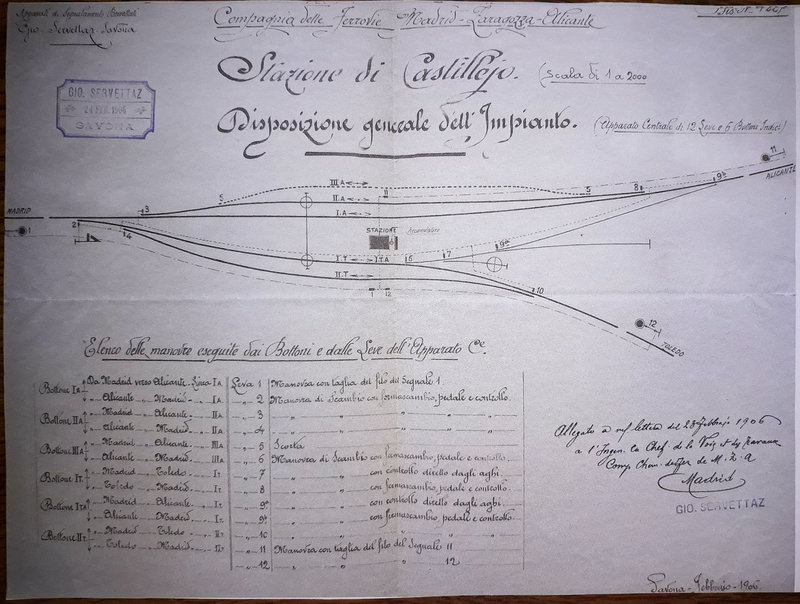 Apparati di Segnalamento Servettaz
Gio. Servettaz Savona
Compagnia delle Ferrovie Madrid-Zaragozza-Alicante
Stazione di Castillejo.
(Scala di 1 a 2000
GIO. SERVETTAZ
24 FEB. 1906
SAVONA
Disposizione generale dell'Impianto.
(Apparato Centrale di 12 Leve e 6 Bottoni Indici)
11
ALICANTE
III.A
5
II.A
11
5
8
9b
MADRID
3
I.A
1
2
4
STAZIONE
Accumulatore
I.T
I.T.A
6
7
9a
II.T
1
12
10
12
TOLEDO
Elenco delle manovre eseguite dai Bottoni e dalle Leve dell'Apparato Ce.
Bottone IA. Da Madrid verso Alicante. Linea IA Leva 1 Manovra con taglia del filo del Segnale 1
„ Alicante „ Madrid „ IA „ 2 Manovra di Scambio con fermascambio, pedale e controllo.
Bottone IIA „ Madrid „ Alicante „ IIA „ 3 „ „ „ „
„ Alicante „ Madrid „ IIA „ 4 „ „ „ „
Bottone IIIA „ Madrid „ Alicante „ IIIA „ 5 Scorta
„ Alicante „ Madrid „ IIIA „ 6 Manovra di Scambio con fermascambio, pedale e controllo.
Bottone IT. „ Madrid „ Toledo „ IT „ 7 „ „ con controllo diretto dagli aghi.
„ Toledo „ Madrid „ IT „ 8 „ „ con fermascambio, pedale e controllo.
Bottone ITA „ Madrid „ Alicante „ IT „ 9a „ „ con controllo diretto dagli aghi.
„ Alicante „ Madrid „ IT „ 9b „ „ con fermascambio, pedale e controllo.
Bottone IIT. „ Madrid „ Toledo „ IIT „ 10 „ „ „ „
„ Toledo „ Madrid „ IIT „ 11 Manovra con taglia del filo del Segnale 11
„ 12 „ „ „ 12
Allegato a ns/ lettera del 23 Febbrajo 1906
a l'Ingen. en Chef de la Voie
Madrid
GIO. SERVETTAZ
Savona - Febbraio - 1906.